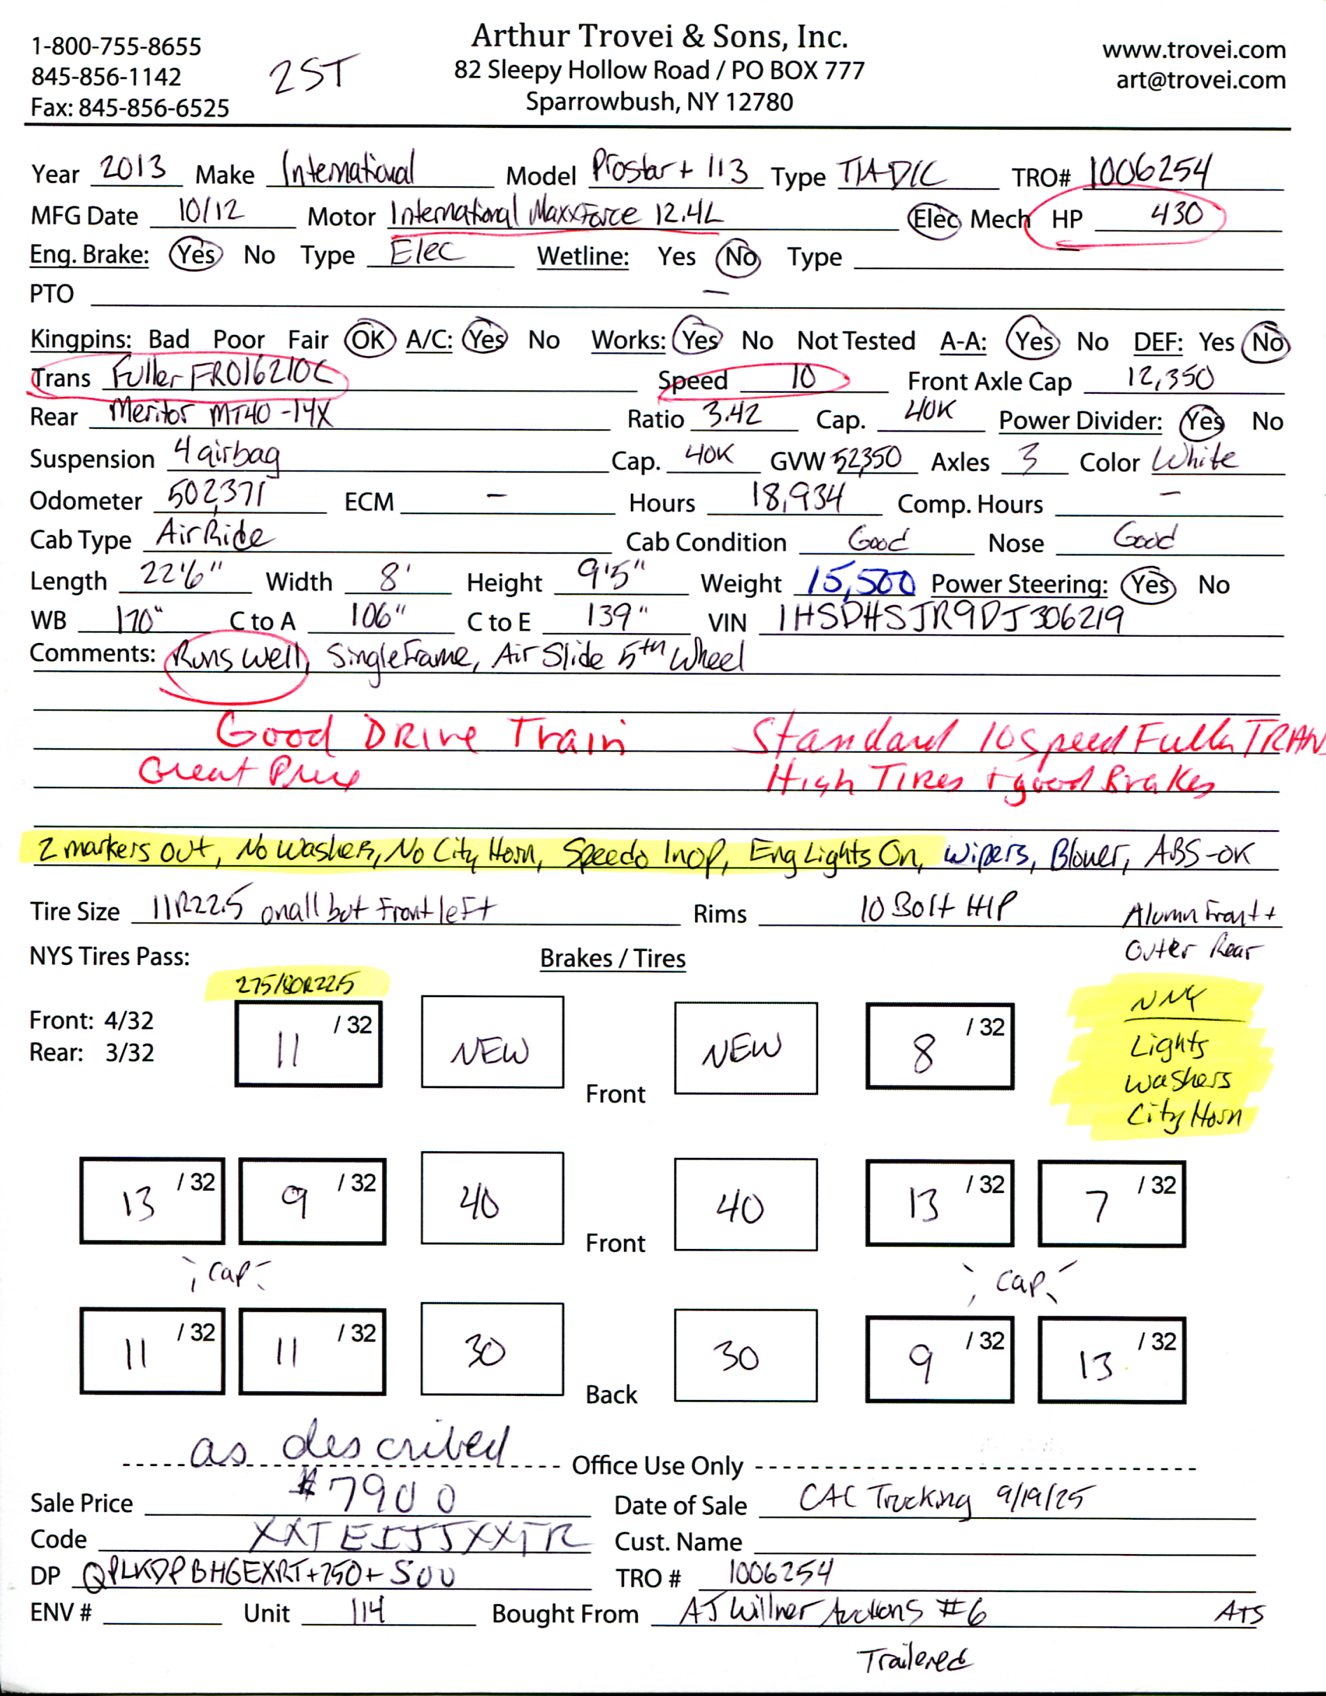 1-800-755-8655
845-856-1142
Fax: 845-856-6525
2ST
Arthur Trovei & Sons, Inc.
82 Sleepy Hollow Road / PO BOX 777
Sparrowbush, NY 12780
www.trovei.com
art@trovei.com
Year 2013 Make International Model Prostar+ 113 Type T/A D/C TRO# 1006254
MFG Date 10/12 Motor International MaxxForce 12.4L Elec Mech HP 430
Eng. Brake: Yes No Type Elec Wetline: Yes No Type
PTO —
Kingpins: Bad Poor Fair OK A/C: Yes No Works: Yes No Not Tested A-A: Yes No DEF: Yes No
Trans Fuller FRO16210C Speed 10 Front Axle Cap 12,350
Rear Meritor MT40-14X Ratio 3.42 Cap. 40K Power Divider: Yes No
Suspension 4 airbag Cap. 40K GVW 52,350 Axles 3 Color White
Odometer 502,371 ECM — Hours 18,934 Comp. Hours —
Cab Type Air Ride Cab Condition Good Nose Good
Length 22'6" Width 8' Height 9'5" Weight 15,500 Power Steering: Yes No
WB 170" C to A 106" C to E 139" VIN 1HSDHSJR9DJ306219
Comments: Runs well, Single Frame, Air Slide 5th Wheel
Good DRive Train Standard 10 speed Fuller TRAN
Great Price High Tires + good Brakes
2 markers out, No Washers, No City Horn, Speedo Inop, Eng Lights On, Wipers, Blower, ABS-OK
Tire Size 11R22.5 on all but Front left Rims 10 Bolt H/P Alumn Front +
Outer Rear
NYS Tires Pass: Brakes / Tires
275/80R22.5
Front: 4/32
Rear: 3/32
11 /32 NEW Front NEW 8 /32
NMY
Lights
Washers
City Horn
13 /32 9 /32 40 Front 40 13 /32 7 /32
Cap Cap
11 /32 11 /32 30 Back 30 9 /32 13 /32
as described
Office Use Only
Sale Price $7900 Date of Sale CAC Trucking 9/19/25
Code XXTEIJJXXTR Cust. Name
DP QPLKDPBHGEXRT+250+500 TRO # 1006254
ENV # Unit 114 Bought From AJ Willner Auctions #6 ATS
Trailered